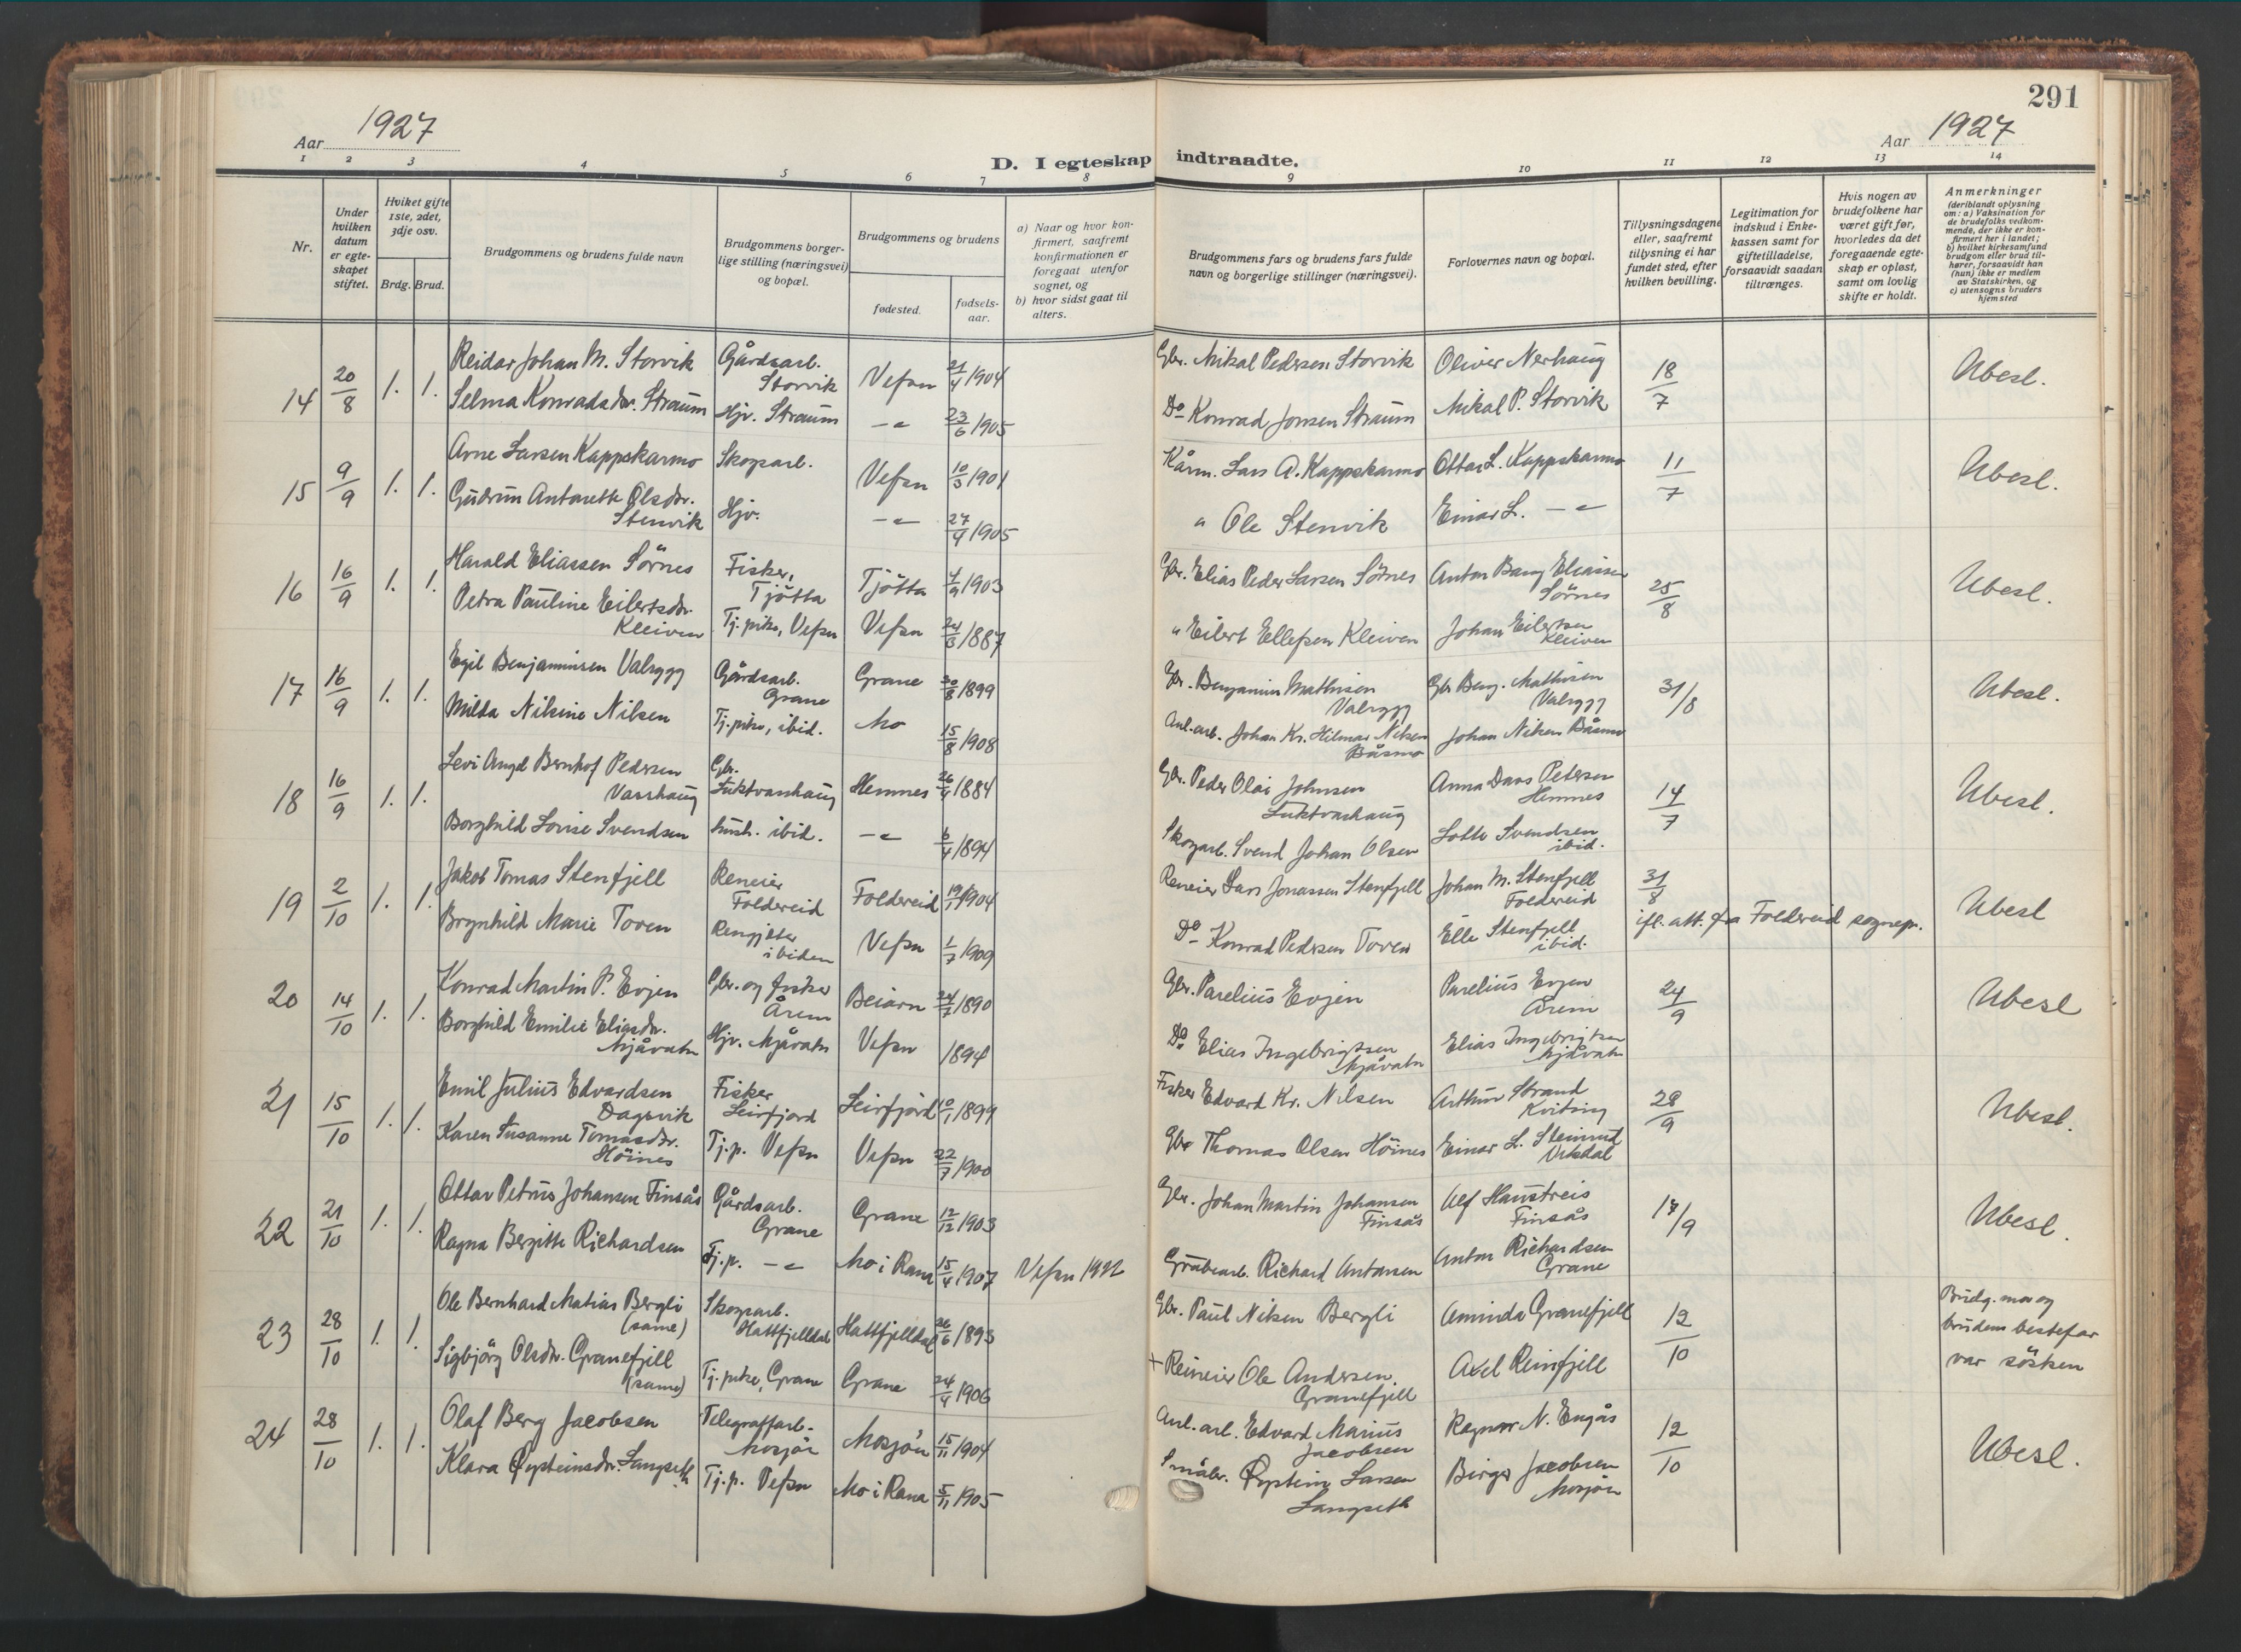 291
Aar 1927
Aar 1927
D. I egteskap indtraadte.
1 2 3 4 5 6 7 8 9 10 11 12 13 14
Nr.
Under hvilken datum er egte-skapet stiftet.
Hviket gifte 1ste, 2det, 3dje osv.
Brdg. Brud.
Brudgommens og brudens fulde navn
Brudgommens borger-lige stilling (næringsvei) og bopæl.
Brudgommens og brudens
fødested.
fødsels-aar.
a) Naar og hvor kon-firmert, saafremt konfirmationen er foregaat utenfor sognet, og
b) hvor sidst gaat til alters.
Brudgommens fars og brudens fars fulde navn og borgerlige stillinger (næringsvei).
Forlovernes navn og bopæl.
Tillysningsdagene eller, saafremt tillysning ei har fundet sted, efter hvilken bevilling.
Legitimation for indskud i Enke-kassen samt for giftetilladelse, forsaavidt saadan tiltrænges.
Hvis nogen av brudefolkene har været gift før, hvorledes da det foregaaende egte-skap er opløst, samt om lovlig skifte er holdt.
Anmerkninger (deriblandt oplysning om: a) Vaksination for de brudefolks vedkom-mende, der ikke er kon-firmert her i landet; b) hvilket kirkesamfund brudgom eller brud til-hører, forsaavidt han (hun) ikke er medlem av Statskirken, og c) utensogns bruders hjemsted
14 20/8 1. 1. Reidar Johan M. Storvik Gårdsarb. Storvik Vefsn 21/4 1904 Gbr. Mikal Pedersen Storvik Oliver Nerhaug 18/7 Ubesl.
Selma Konradsdr. Straum Hjv. Straum -"- 23/6 1905 Do Konrad Jonsen Straum Mikal P. Storvik
15 9/9 1. 1. Arne Larsen Kappskarmo Skogsarb. Vefsn 10/3 1901 Kårm. Lars A. Kappskarmo Ottar L. Kappskarmo 11/7 Ubesl.
Gudrun Antonette Olsdr. Stenvik Hjv. -"- 27/4 1905 " Ole Stenvik Einar L. -"-
16 16/9 1. 1. Harald Eliassen Sörnes Fisker, Tjötta Tjötta 1903 Gbr. Elias Peder Larsen Sörnes Anton Bang Eliassen Sörnes 25/8 Ubesl.
Petra Pauline Eilertsdr. Kleiven Tj.pike, Vefsn Vefsn 1887 " Eilert Ellefsen Kleiven Johan Eilertsen Kleiven
17 16/9 1. 1. Egil Benjaminsen Valrygg Gårdsarb. Grane Grane 30/8 1899 Gbr. Benjamin Mathisen Valrygg Gbr Benj. Mathisen Valrygg 31/8 Ubesl.
Milda Nilsine Nilsen Tj.pike, ibid. Mo 15/8 1908 Anl.arb. Johan Kr. Hilmar Nilsen Båsmo Johan Nilsen Båsmo
18 16/9 1. 1. Levi Angel Bernhof Pedersen Vasshaug Gbr. Luktvasshaug Hemnes 26/4 1884 Gbr. Peder Olai Johnsen Luktvashaug Anna Daas Petersen Hemnes 14/7 Ubesl.
Borghild Lovise Svendsen hush. ibid. -"- 6/4 1894 Skogarb. Svend Johan Olsen Lotte Svendsen ibid.
19 2/10 1. 1. Jakob Tomas Stenfjell Reneier Foldereid Foldereid 19/1 1904 Reneier Lars Jonassen Stenfjell Johan M. Stenfjell Foldereid 31/8 Ubesl
ifl. att. fra Foldereid sognepr.
Brynhild Marie Toven Rengjeter ibidem Vefsn 1/7 1909 Do Konrad Pedersen Toven Elle Stenfjell ibid.
20 14/10 1. 1. Konrad Martin P. Evjen Gbr. og fisker Årem Beiarn 24/7 1890 Gbr. Parelius Evjen Parelius Evjen Årem 24/9 Ubesl
Borghild Emilie Eliasdr. Mjåvatn Hjv. Mjåvatn Vefsn 1894 Do Elias Ingebrigtsen Mjåvatn Elias Ingebrigtsen Mjåvatn
21 15/10 1. 1. Emil Julius Edvardsen Dagsvik Fisker Leirfjord Leirfjord 10/1 1899 Fisker Edvard Kr. Nilsen Arthur Strand Kviting 28/9 Ubesl.
Karen Susanne Tomasdr. Höines Tj.p. Vefsn Vefsn 22/7 1900 Gbr Thomas Olsen Höines Einar L.
22 21/10 1. 1. Ottar Petrus Johansen Finsås Gårdsarb. Grane Grane 12/12 1903 Gbr. Johan Martin Johansen Finsås Alf Haustreis Finsås /9 Ubesl.
Ragna Bergitte Richardsen Tj.p. -"- Mo i Rana 15/4 1907 Vefsn 1922 Grubearb. Richard Antonsen Anton Richardsen Grane
23 28/10 1. 1. Ole Bernhard Matias Bergli (same) Skogsarb. Hattfjelldal Hattfjelldal 26/6 1893 Gbr. Paul Nilsen Bergli Aminda Granefjell 12/10 Brudg. mor og brudens bestefar var sösken
Sigbjörg Olsdr. Granefjell (same) Tj.pike, Grane Grane 24/4 1906 + Reineier Ole Andersen Granefjell Axel Reinfjell
24 28/10 1. 1. Olaf Berg Jacobsen Telegrafarb. Mosjön Mosjön 15/11 1904 Anl. arb. Edvard Marius Jacobsen Ragnar N. Engås 12/10 Ubesl.
Klara Øysteinsdr. Langseth Tj.p. Vefsn Mo i Rana 5/11 1905 Småbr. Øystein Larsen Langseth Birger Jacobsen Mosjön